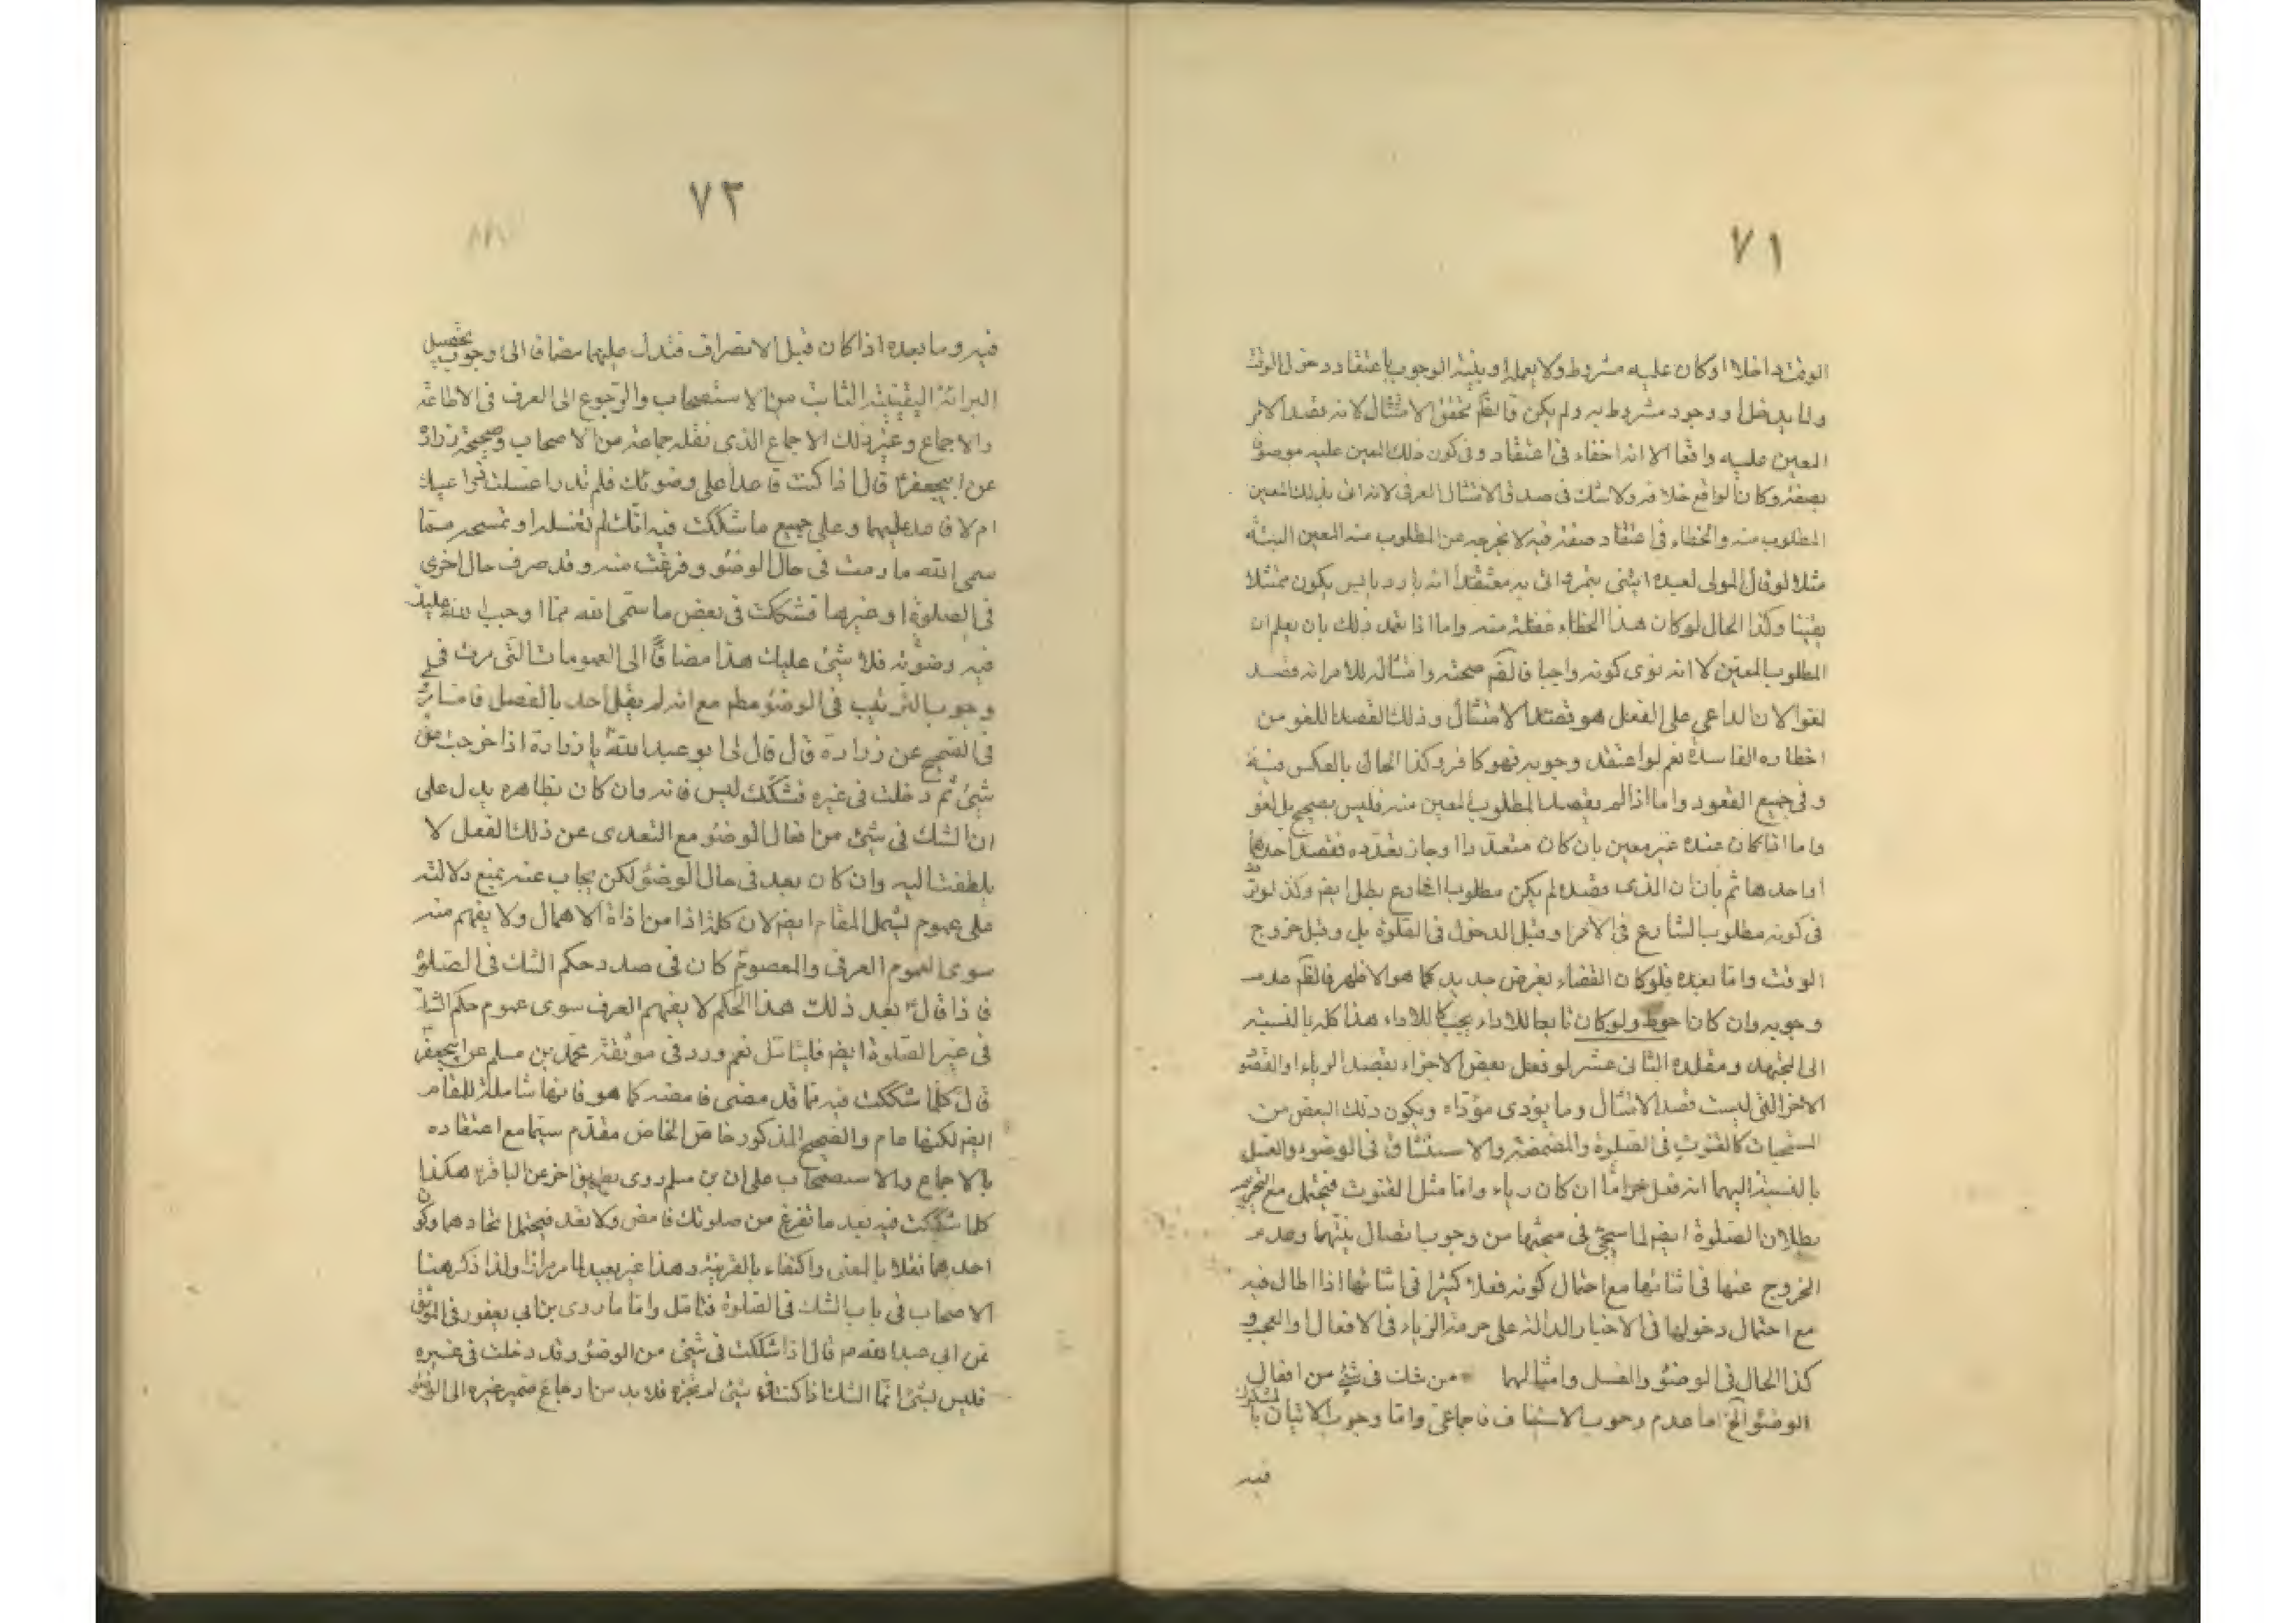 ٧١
الوقت داخلا او كان عليه مشروط ولا يعلم او بنية الوجوب باعتقاد دخول الوقت
ولما يدخل او وجود مشروط به ولم يكن فالظم تحقق الامتثال لانه بقصد الامر
المعين عليه واقعا الا انه اخفاء فى اعتقاد وفى كون ذلك المعين عليه موصوفا
بصفة وكان الواقع خلافه ولا شك فى صدق الامتثال العرفى لانه اتى بذلك المعين
المطلوب منه والخطاء فى اعتقاد صفة فيه لا يخرجه عن المطلوب منه المعين البتة
مثلا لو قال المولى لعبده ايتنى بتمرة اتى به معتقدا انه بارد يابس يكون ممتثلا
يقينا وكذا الحال لو كان هذا الخطاء غفلة منه واما اذا تعمد ذلك بان يعلم ان
المطلوب المعين لا انه نوى كونه واجبا فالظم صحته وامتثاله للامر انه قصد
لغوا لان الداعي على الفعل هو قصد الامتثال وذلك القصد اللغو من
اخطاره الفاسدة نعم لو اعتقد وجوبه فهو كافر وكذا الحال بالعكس فيه
وفى جميع العقود واما اذا لم يقصد المطلوب المعين منه فليس بصحيح بل لغو
واما اذا كان عنده غير معين بان كان متعددا او جاز تعدده فقصد احدهما
او احدها ثم بان ان الذى قصده لم يكن مطلوب الشارع بطل ايضم وكذا لو تردد
فى كونه مطلوب الشارع فى الآخر او قبل الدخول فى الصلوة بل وقبل خروج
الوقت واما بعده فلو كان القضاء بفرض جديد كما هو الاظهر فالظم عدم
وجوبه وان كان احوط ولو كان تابعا للاداء يجب كالاداء هذا كله بالنسبة
الى المجتهد ومقلده الثانى عشر لو فعل بعض الاجزاء بقصد الرياء او القصود
الاخر التى ليست قصد الامتثال وما يؤدى مؤداه ويكون ذلك البعض من
المستحبات كالقنوت فى الصلوة والمضمضة والاستنشاق فى الوضوء والغسل
بالنسبة اليهما انه فعل حراما ان كان رياء واما مثل القنوت فيحتمل مع التحريم
بطلان الصلوة ايضم لما سيجئ فى مبحثها من وجوب اتصال نيتهما وعدم
الخروج عنها فى اثنائها مع احتمال كونه فعلا كثيرا فى اثنائها اذا اطال فيه
مع احتمال دخولها فى الاخبار الدالة على حرمة الرياء فى الافعال والعجب و
كذا الحال فى الوضوء والغسل وامثالهما من شك فى شئ من افعال
الوضوء الخ اما عدم وجوب الاستيناف فاجماعى واما وجوب الاتيان بالمشكوك
فيه
٧٢
فيه وما بعده اذا كان قبل الانصراف فتدل عليهما مضافا الى وجوب تحصيل
البرائة اليقينية الثابت من الاستصحاب والرجوع الى العرف فى الاطاعة
والاجماع وغير ذلك الاجماع الذى نقله جماعة من الاصحاب وصحيحة زرارة
عن ابيجعفرؑ قال اذا كنت قاعدا على وضوئك فلم تدر اغسلت ذراعيك
ام لا فاعد عليهما وعلى جميع ما شككت فيه انك لم تغسله او تمسحه مما
سمى الله ما دمت فى حال الوضوء وفرغت منه وقد صرت فى حال اخرى
فى الصلوة او غيرها فشككت فى بعض ما سمى الله مما اوجب الله عليك
فيه وضوئه فلا شئ عليك هذا مضافا الى العمومات التى مرت فى
وجوب الترتيب فى الوضوء مطم مع انه لم يقل احد بالفصل فاما ما
فى الصحيح عن زرارة قال قال لى ابو عبد اللهؑ يا زرارة اذا خرجت من
شئ ثم دخلت فى غيره فشكك ليس فانه وان كان بظاهره يدل على
ان الشك فى شئ من افعال الوضوء مع التعدى عن ذلك الفعل لا
يلتفت اليه وان كان بعد فى حال الوضوء لكن يجاب عنه بمنع دلالته
على عموم ليشمل المقام ايضم لان كلمة اذا من اداة الاهمال ولا يفهم منه
سوى العموم العرفى والمعصومؑ كان فى صدد حكم الشك فى الصلوة
فاذا قالؑ بعد ذلك هذا الحكم لا يفهم العرف سوى عموم حكم الشك
فى غير الصلوة ايضم فليتامل نعم ورد فى موثقة محمد بن مسلم عن ابيجعفرؑ
قال كلما شككت فيه مما قد مضى فامضه كما هو فانها شاملة للمقام
ايضم لكنها عام والصحيح المذكور خاص والخاص مقدم سيما مع اعتضاده
بالاجماع والاستصحاب على ان بن مسلم روى بطريق اخر عن الباقرؑ هكذا
كلما شككت فيه بعد ما تفرغ من صلوتك فامض ولا تعد فيحتمل اتحادهما وكون
احدهما نقلا بالمعنى واكتفاء بالقرينة وهذا غير بعيد لما مر مرارا ولذا ذكر هنا
الاصحاب فى باب الشك فى الصلوة فتامل واما ما روى بن ابى يعفور فى الموثق
عن ابى عبد الله م قال اذا شككت فى شئ من الوضوء وقد دخلت فى غيره
فليس بشئ انما الشك اذا كنت فى شئ لم تجزه فلا بد من ارجاع ضمير غيره الى الوضوء